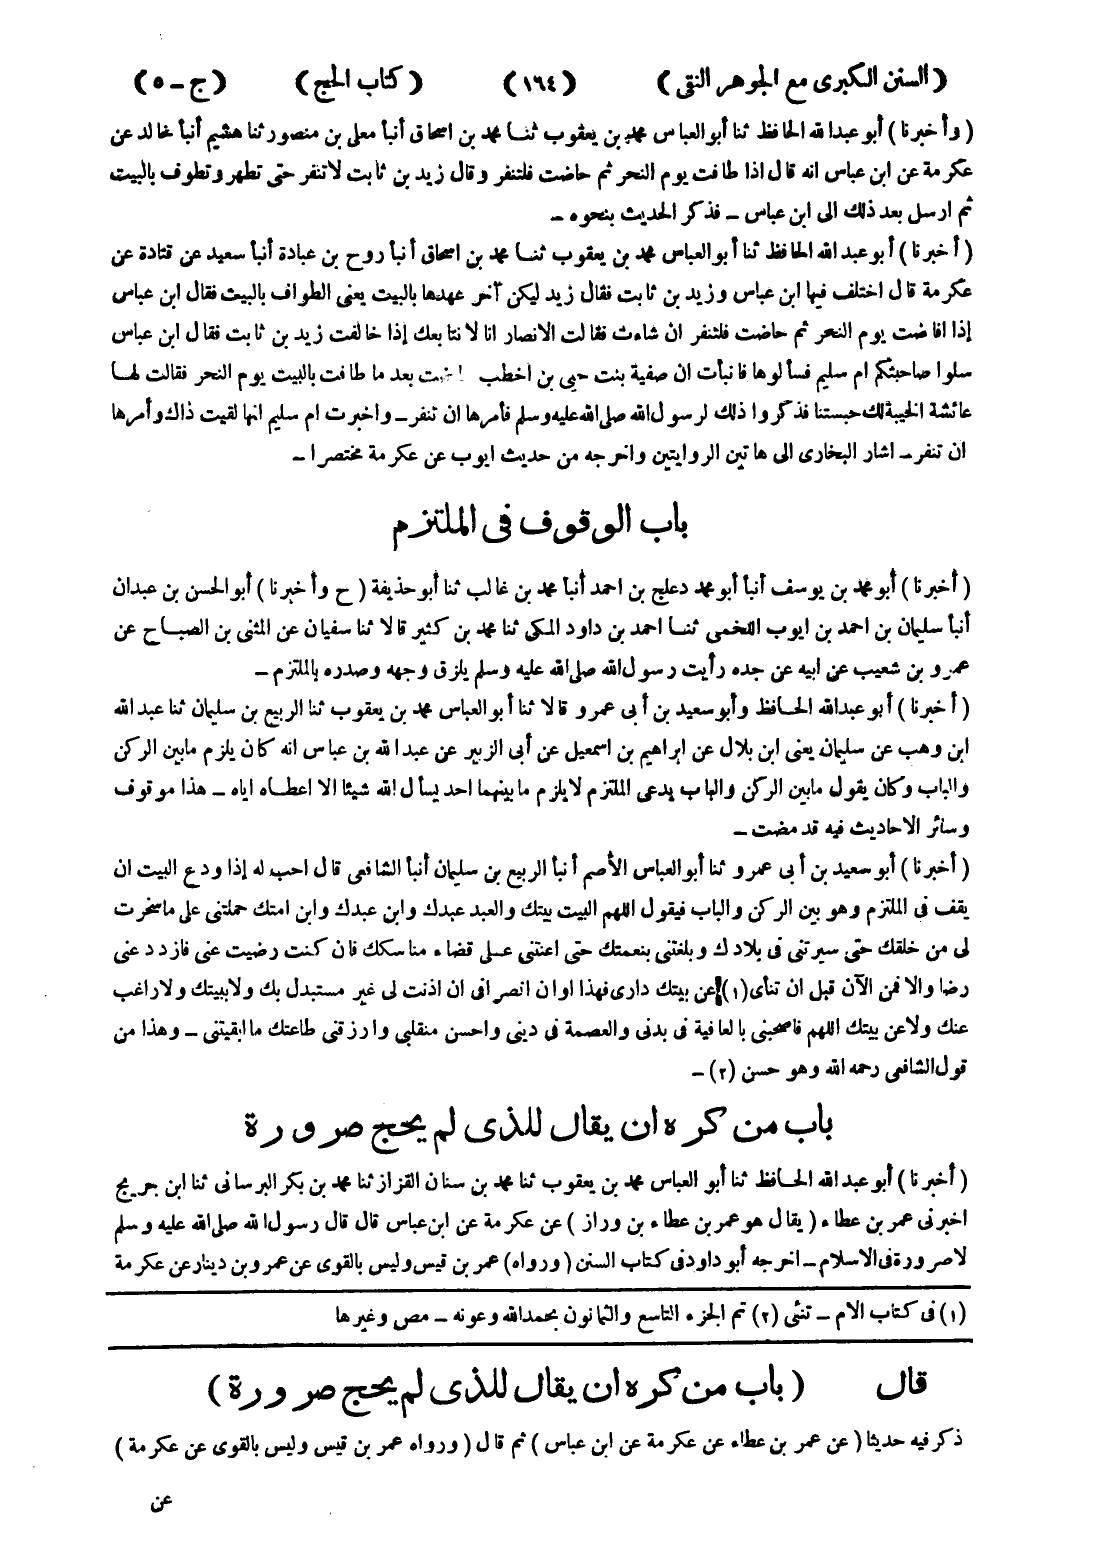 (السنن الكبرى مع الجوهر النقى) (١٦٤) (كتاب الحج) (ج - ٥)
(وأخبرنا) أبو عبد الله الحافظ ثنا أبو العباس محمد بن يعقوب ثنا محمد بن اسحاق أنبأ معلى بن منصور ثنا هشيم أنبأ خالد عن
عكرمة عن ابن عباس انه قال اذا طافت يوم النحر ثم حاضت فلتنفر وقال زيد بن ثابت لاتنفر حتى تطهر وتطوف بالبيت
ثم ارسل بعد ذلك الى ابن عباس - فذكر الحديث بنحوه -
(أخبرنا) أبو عبد الله الحافظ ثنا أبو العباس محمد بن يعقوب ثنا محمد بن اسحاق أنبأ روح بن عبادة أنبأ سعيد عن قتادة عن
عكرمة قال اختلف فيها ابن عباس وزيد بن ثابت فقال زيد ليكن آخر عهدها بالبيت يعنى الطواف بالبيت فقال ابن عباس
إذا افاضت يوم النحر ثم حاضت فلتنفر ان شاءت فقالت الانصار انا لا نتابعك إذا خالفت زيد بن ثابت فقال ابن عباس
سلوا صاحبتكم ام سليم فسألوها فانبأت ان صفية بنت حيى بن اخطب بعد ما طافت بالبيت يوم النحر فقالت لها
عائشة الخيبة لك حبستنا فذكروا ذلك لرسول الله صلى الله عليه وسلم فأمرها ان تنفر - واخبرت ام سليم انها لقيت ذاك وأمرها
ان تنفر - اشار البخارى الى هاتين الروايتين واخرجه من حديث ايوب عن عكرمة مختصرا -
باب الوقوف فى الملتزم
(أخبرنا) أبو محمد بن يوسف أنبأ أبو محمد دعلج بن احمد أنبأ محمد بن غالب ثنا أبو حذيفة (ح وأخبرنا) أبو الحسن بن عبدان
أنبأ سليمان بن احمد بن ايوب اللخمى ثنا احمد بن داود المكى ثنا محمد بن كثير قالا ثنا سفيان عن المثنى بن الصباح عن
عمرو بن شعيب عن ابيه عن جده رأيت رسول الله صلى الله عليه وسلم يلزق وجهه وصدره بالملتزم -
(أخبرنا) أبو عبد الله الحافظ وأبو سعيد بن أبى عمرو قالا ثنا أبو العباس محمد بن يعقوب ثنا الربيع بن سليمان ثنا عبد الله
ابن وهب عن سليمان يعنى ابن بلال عن ابراهيم بن اسمعيل عن أبى الزبير عن عبد الله بن عباس انه كان يلزم مابين الركن
والباب وكان يقول مابين الركن والباب يدعى الملتزم لايلزم ما بينهما احد يسأل الله شيئا الا اعطاه اياه - هذا موقوف
وسائر الاحاديث فيه قد مضت -
(أخبرنا) أبو سعيد بن أبى عمرو ثنا أبو العباس الأصم أنبأ الربيع بن سليمان أنبأ الشافعى قال احب له إذا ودع البيت ان
يقف فى الملتزم وهو بين الركن والباب فيقول اللهم البيت بيتك والعبد عبدك وابن عبدك وابن امتك حملتنى على ما سخرت
لى من خلقك حتى سيرتنى فى بلادك وبلغتنى بنعمتك حتى اعنتنى على قضاء مناسكك فان كنت رضيت عنى فازدد عنى
رضا والا فمن الآن قبل ان تنأى (١) عن بيتك دارى فهذا اوان انصرافى ان اذنت لى غير مستبدل بك ولا ببيتك ولا راغب
عنك ولا عن بيتك اللهم فاصحبنى بالعافية فى بدنى والعصمة فى دينى واحسن منقلبى وارزقنى طاعتك ما ابقيتنى - وهذا من
قول الشافعى رحمه الله وهو حسن (٢) -
باب من كره ان يقال للذى لم يحج صرورة
(أخبرنا) أبو عبد الله الحافظ ثنا أبو العباس محمد بن يعقوب ثنا محمد بن سنان القزاز ثنا محمد بن بكر البرسانى ثنا ابن جريج
اخبرنى عمر بن عطاء (يقال هو عمر بن عطاء بن وراز) عن عكرمة عن ابن عباس قال قال رسول الله صلى الله عليه وسلم
لاصرورة فى الاسلام - اخرجه أبو داود فى كتاب السنن (ورواه) عمر بن قيس وليس بالقوى عن عمرو بن دينار عن عكرمة
(١) فى كتاب الام - تنئى (٢) تم الجزء التاسع والثمانون بحمد الله وعونه - مص وغيرها
قال (باب من كره ان يقال للذى لم يحج صرورة)
ذكر فيه حديثا (عن عمر بن عطاء عن عكرمة عن ابن عباس) ثم قال (ورواه عمر بن قيس وليس بالقوى عن عكرمة)
عن